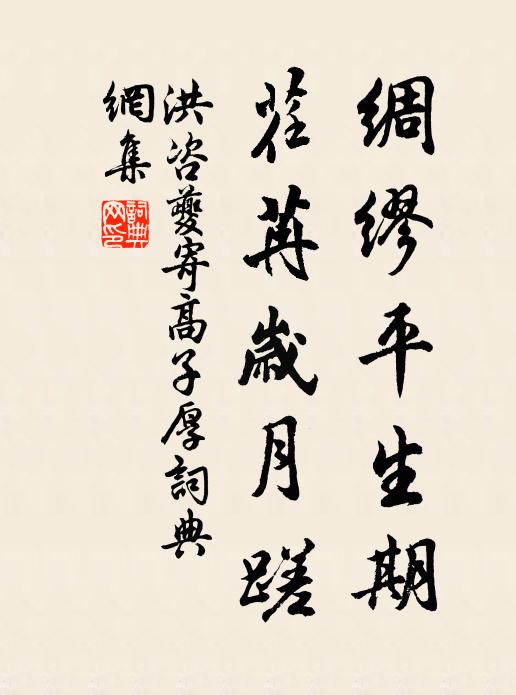 綢繆平生期
荏苒歲月蹉
洪咨夔寄高子厚詞典
網集
詞典
网印